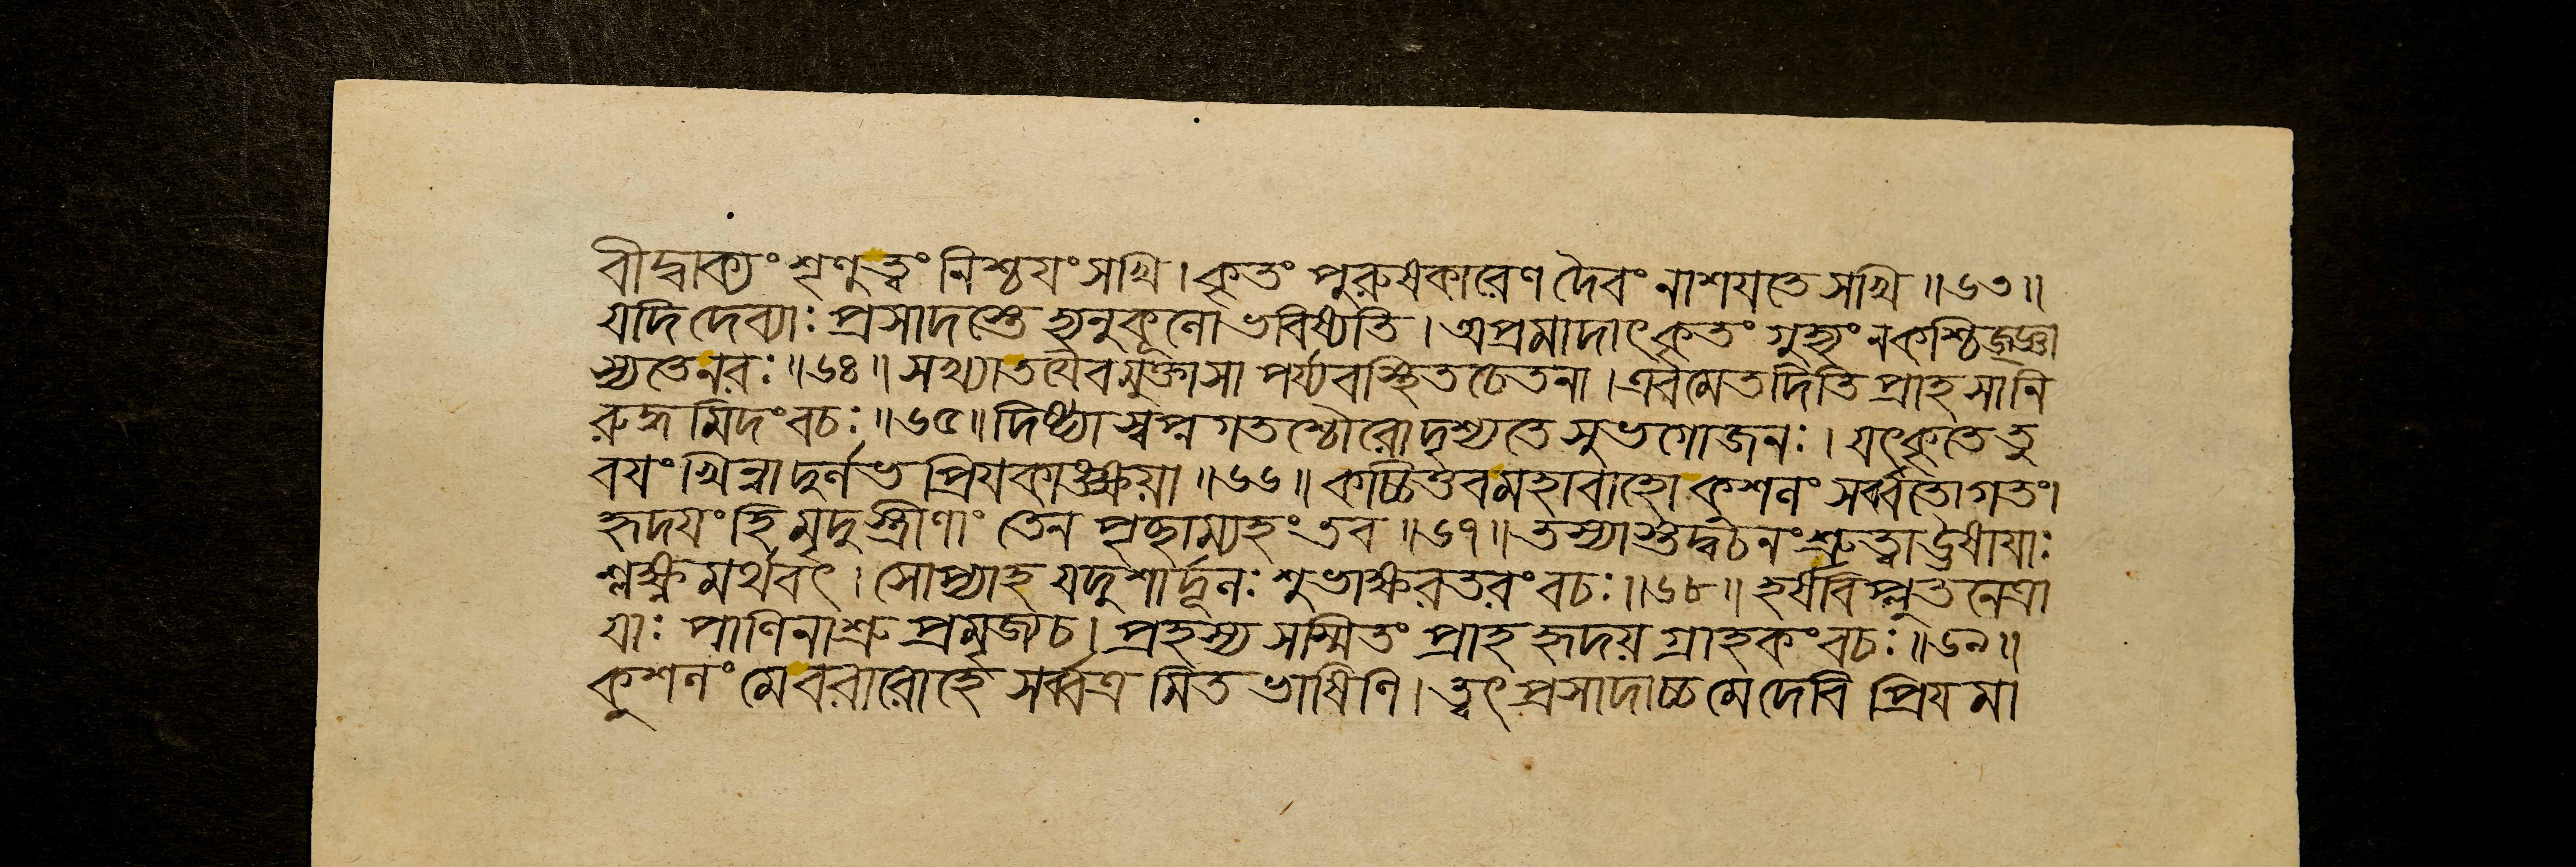 বীদ্বাক্যং শৃণুত্বং নিশ্চয়ং সখি । কৃতং পুরুষকারেণ দৈবং নাশযতে সখি ॥ ৬৩ ॥
যদি দেব্যাঃ প্রসাদস্তে হ্যনুকূলো ভবিষ্যতি । অপ্রমাদাৎ কৃতং গুহ্যং ন কশ্চিজ্জ্ঞা
স্যতে নরঃ ॥ ৬৪ ॥ সখ্যাতথৈবমুক্তাসা পর্য্যবস্থিতচেতনা । এবমেতদিতি প্রাহ সানি
রুদ্ধমিদং বচঃ ॥ ৬৫ ॥ দিষ্ট্যা স্বপ্নগতশ্চৌরো দৃশ্যতে সুভগোজনঃ । যৎকৃতে তু
বযং খিন্নাদুর্লভ প্রিযকাঙ্ক্ষয়া ॥ ৬৬ ॥ কচ্চিত্তবমহাবাহো কুশলং সর্ব্বতোগতং।
হৃদযং হি মৃদুস্ত্রীণাং তেন পৃচ্ছাম্যহংতব ॥ ৬৭ ॥ তস্যাস্তদ্বচনংশ্রুত্বাউষাযাঃ
শ্লক্ষ্ণমর্থবৎ । সোপ্যাহ যদুশার্দ্দূলঃ শুভাক্ষরতরং বচঃ ॥ ৬৮ ॥ হর্ষবিপ্লুতনেত্রা
যাঃ পাণিনাশ্রু প্রমৃজ্যচ । প্রহস্য সস্মিতং প্রাহ হৃদয়গ্রাহকং বচঃ ॥ ৬৯ ॥
কুশলং মেবরারোহে সর্ব্বত্র মিতভাষিণি । ত্বৎপ্রসাদাচ্চ মেদেবি প্রিযমা